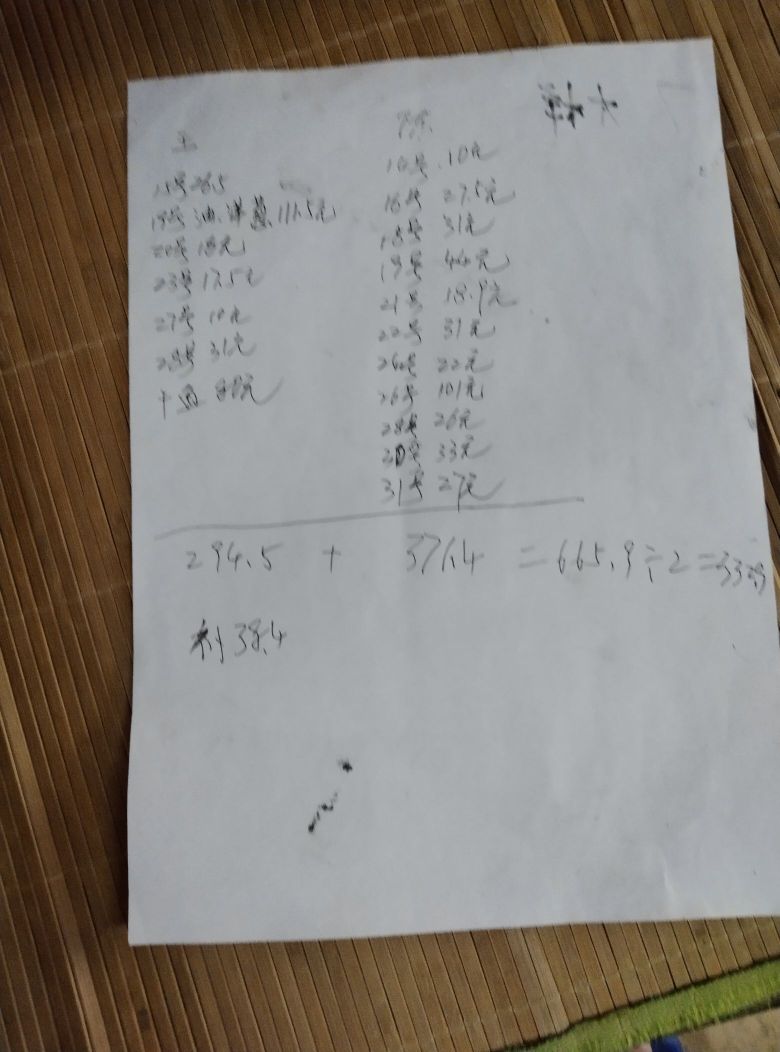 王
15号26.5
19号油.洋葱111.5元
20号18元
23号17.5元
27号10元
28号31元
干鱼80元
陈
14号.10元
16号 27.5元
18号 31元
19号 44元
21号 18.9元
22号 31元
24号 22元
26号 101元
28号 26元
号 33元
31号 27元
294.5 + 371.4 =665.9÷2=
补38.4